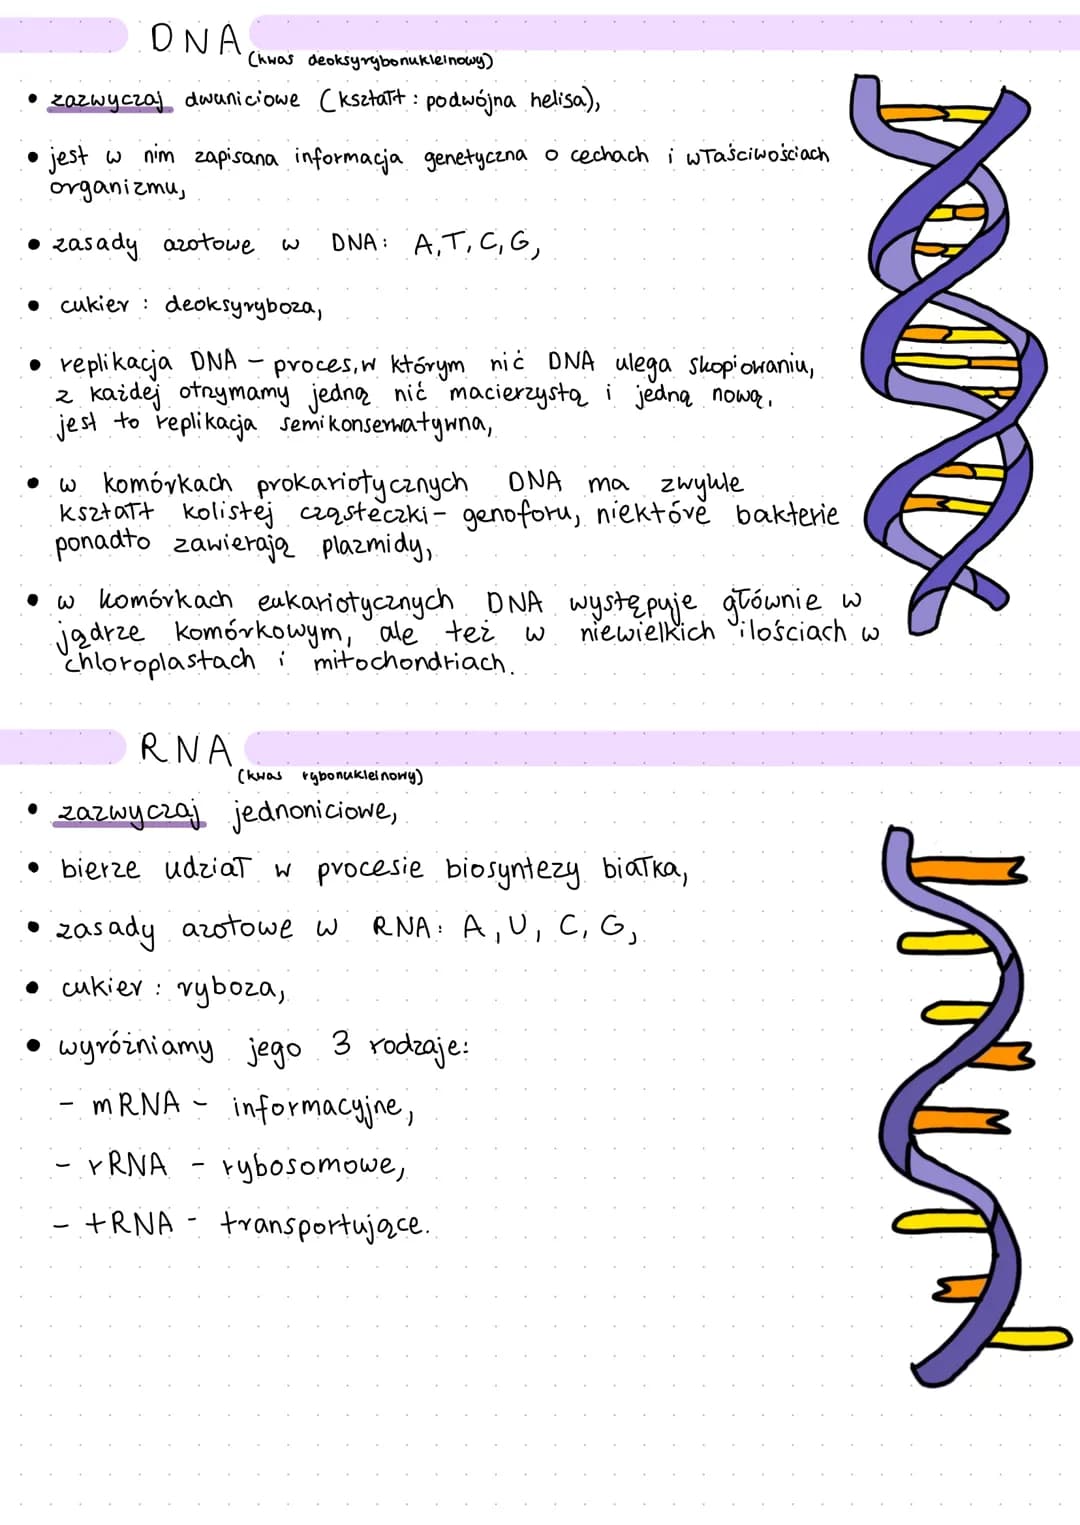 DNA
(kwas deoksyrybonukleinowy)
• zazwyczaj dwuniciowe (kształt: podwójna helisa),
• jest w nim zapisana informacja genetyczna o cechach i właściwościach
organizmu,
• zasady azotowe w DNA: A,T,C,G,
• cukier: deoksyryboza,
• replikacja DNA – proces, w którym nić DNA ulega skopiowaniu,
z każdej otrzymamy jedną nić macierzystą i jedną nową,
jest to replikacja semikonserwatywna,
• w komórkach prokariotycznych DNA ma zwykle
kształt kolistej cząsteczki - genoforu, niektóre bakterie
ponadto zawierają plazmidy,
• w komórkach eukariotycznych DNA występuje głównie w
jądrze komórkowym, ale też w niewielkich ilościach w
chloroplastach i mitochondriach.
RNA
(kwas rybonukleinowy)
• zazwyczaj jednoniciowe,
• bierze udział w procesie biosyntezy białka,
• zasady azotowe w RNA: A, U, C, G,
• cukier: ryboza,
• wyróżniamy jego 3 rodzaje:
- mRNA - informacyjne,
- rRNA - rybosomowe,
- tRNA - transportujące.